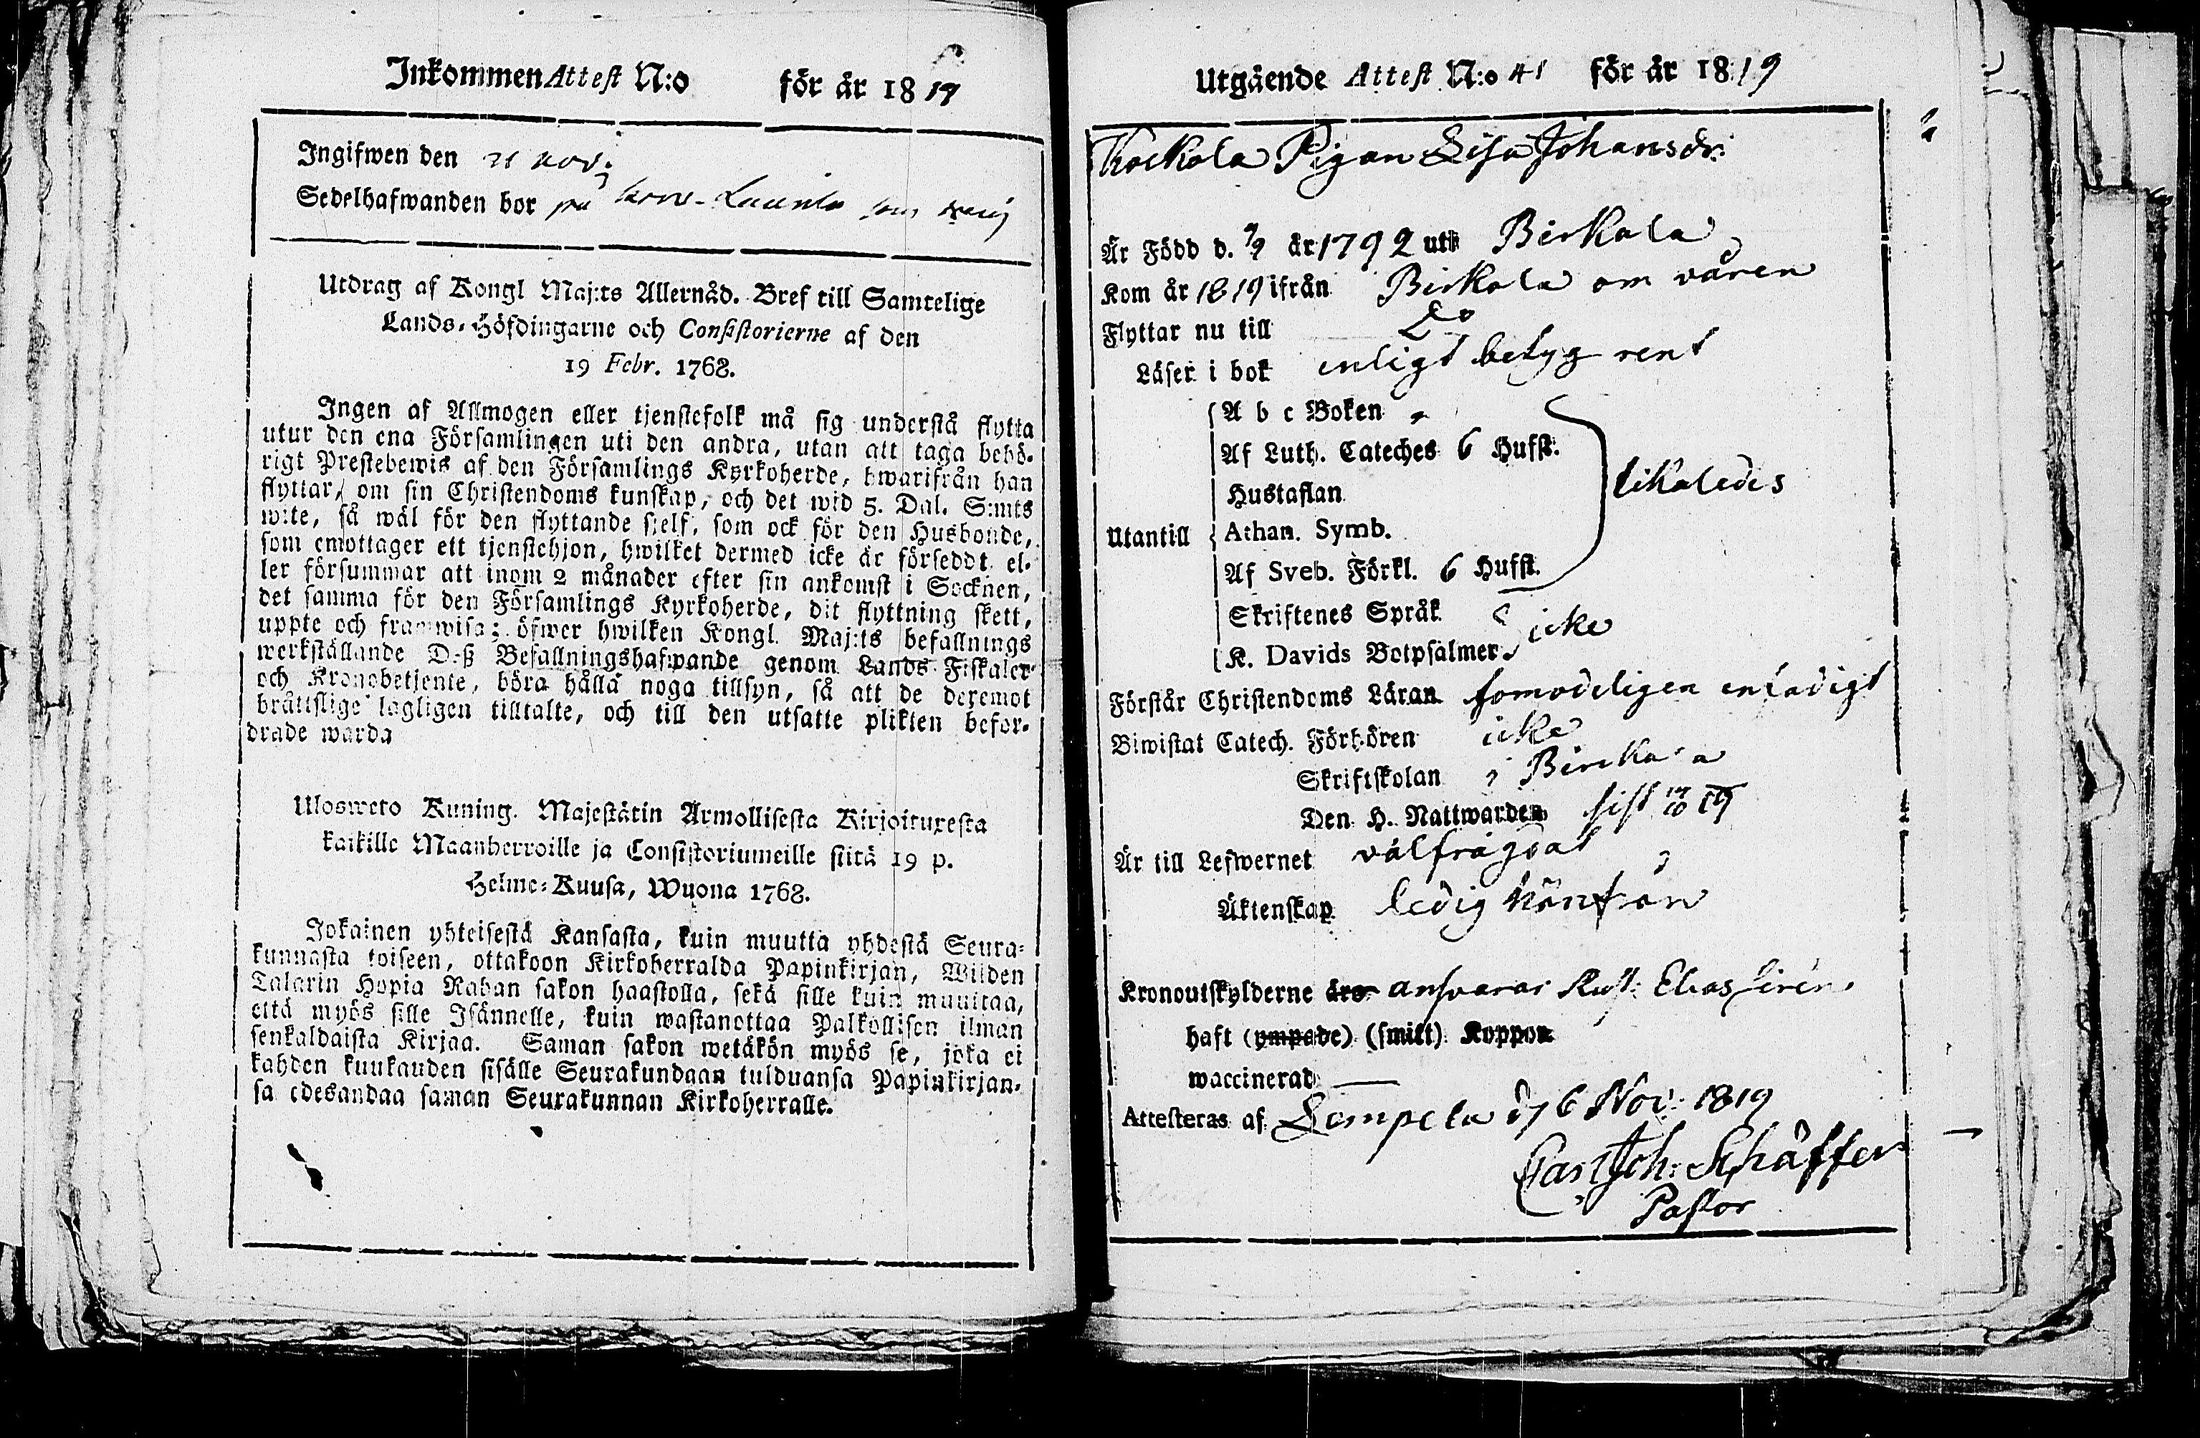 Inkommen Attest N:o för år 1819
Ingifwen den 21 nov:
Sedelhafwanden bor på Laurila som
Utdrag af Kongl Maj:ts Allernåd. Bref till Samtelige
Lands-Höfdingarne och Consistorierne af den
19 Febr. 1768.
Ingen af Allmogen eller tjenstefolk må sig understå flytta
utur den ena Församlingen uti den andra, utan att taga behö-
rigt Prestebewis af den Församlings Kyrkoherde, hwarifrån han
flyttar, om sin Christendoms kunskap, och det wid 5. Dal. S:mts
wite, så wäl för den flyttande sjelf, som ock för den Husbonde,
som emottager ett tjenstehjon, hwilket dermed icke är förseddt el-
ler försummar att inom 2 månader efter sin ankomst i Socknen,
det samma för den Församlings Kyrkoherde, dit flyttning skett,
uppte och framwisa; öfwer hwilken Kongl. Maj:ts befallnings
werkställande Deß Befallningshafwande genom Lands-Fiskaler
och Kronobetjente, böra hålla noga tillsyn, så att de deremot
bråttslige lagligen tilltalte, och till den utsatte plikten befor-
drade warda
Ulosweto Kuning. Majestätin Armollisesta Kirjoituxesta
kaikille Maanherroille ja Consistoriumeille siitä 19 p.
Helme-Kuusa, Wuona 1768.
Jokainen yhteisestä Kansasta, kuin muutta yhdestä Seura-
kunnasta toiseen, ottakoon Kirkoherralda Papinkirjan, Wiiden
Talarin Hopia Rahan sakon haastolla, sekä sille kuin muuttaa,
että myös sille Isännelle, kuin wastanottaa Palkollisen ilman
senkaldaista Kirjaa. Saman sakon wetäkön myös se, joka ei
kahden kuukauden sisälle Seurakundaan tulduansa Papinkirjan-
sa edesandaa saman Seurakunnan Kirkoherralle.
Utgående Attest N:o 41 för år 1819
Kockola Pigan Lisa Johansdr:
Är Född d. 7/9 år 1792 uti Birkala
Kom år 1819 ifrån Birkala om våren
Flyttar nu till Do
Läser i bok enligt betyg rent
A b c Boken
Af Luth. Cateches 6 Hufst.
Hustaflan likaledes
Utantill Athan. Symb.
Af Sveb. Förkl. 6 Hufst.
Skriftenes Språk
K. Davids Botpsalmer icke
Förstår Christendoms Läran enfadigt
Biwistat Catech. Förhören icke
Skriftskolan i Birckala
Den H. Nattwarden sist 17/10 19
Är till Lefwernet välfrägdat
Äktenskap ledig
Kronoutskylderne äro ansvarar Rust: Elias Siren
haft (ympade) (smitt) Koppor
waccinerad —
Attesteras af Lempela d 6 Nov: 1819
Carl Joh: Schäffer
Pastor